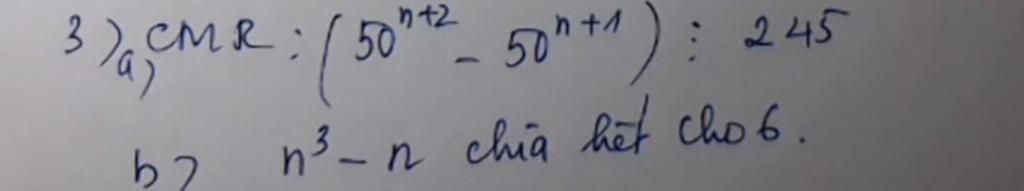 3) a) CMR : (50^{n+2} - 50^{n+1}) ⋮ 245
b) n³ - n chia hết cho 6.